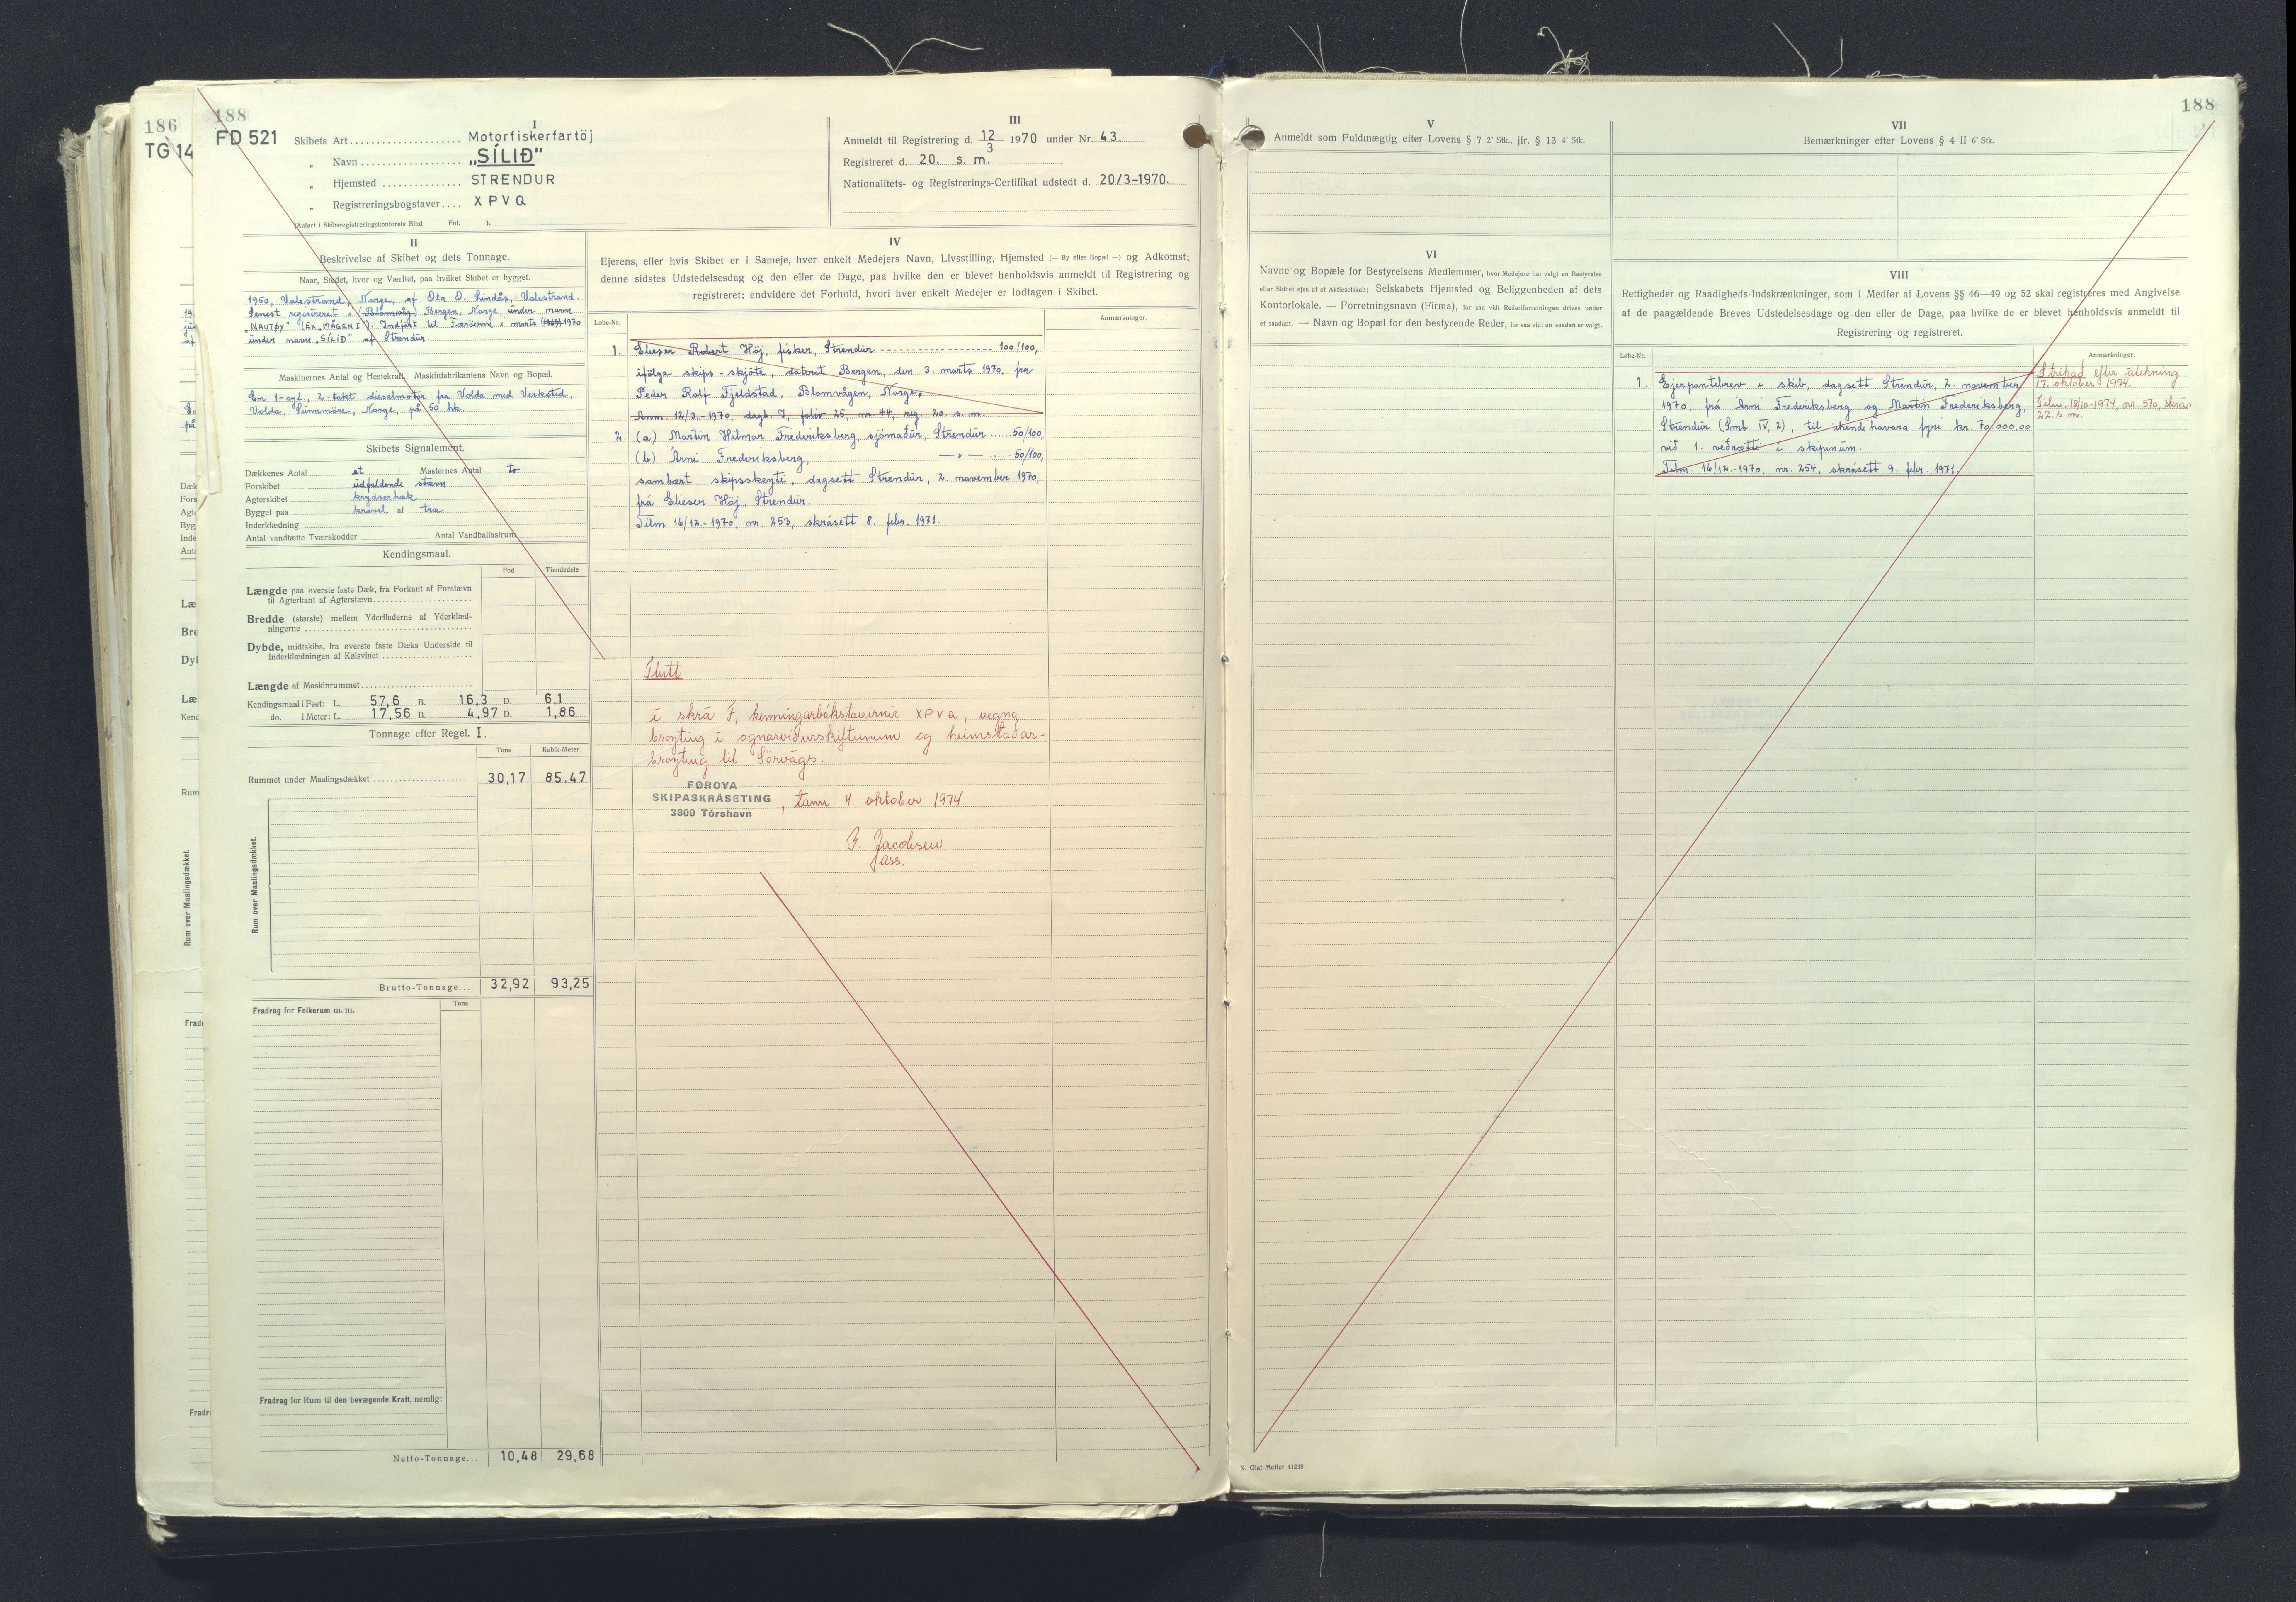 186
TG 14
188
FD 521
I
Skibets Art.................... Motorfiskerfartöj
„ Navn .................. „SÍLIÐ"
„ Hjemsted ............... STRENDUR
„ Registreringsbogstaver.... XPVQ
(Anført i Skibsregistreringskontorets Bind Fol. ).
III
Anmeldt til Registrering d. 12/3 1970 under Nr. 43.
Registreret d. 20. s. m.
Nationalitets- og Registrerings-Certifikat udstedt d. 20/3-1970.
II
Beskrivelse af Skibet og dets Tonnage.
Naar, Stedet, hvor og Værftet, paa hvilket Skibet er bygget.
1950, Valestrand, Norge, af Ola O. Lindås, Valestrand.
Senest registreret i (Blomvåg) Bergen, Norge, under navn
„NAUTØY" (EX „MÅGEN I"). Indført til Færöerne i marts (1969) 1970
under navn „SÍLIÐ" af Strendur.
Maskinernes Antal og Hestekraft, Maskinfabrikantens Navn og Bopæl.
En 1-cyl., 2-takt dieselmotor fra Volda med Verksted,
Volda, Sunnmöre, Norge, på 50 hk.
Skibets Signalement.
Dækkenes Antal et Masternes Antal to
Forskibet udfaldende stævn
Agterskibet krydserhæk
Bygget paa kravel af træ
Inderklædning
Antal vandtætte Tværskodder Antal Vandballastrum
Kendingsmaal.
Fod Tiendedele
Længde paa øverste faste Dæk, fra Forkant af Forstævn
til Agterkant af Agterstævn
Bredde (største) mellem Yderfladerne af Yderklæd-
ningerne
Dybde, midtskibs, fra øverste faste Dæks Underside til
Inderklædningen af Kølsvinet
Længde af Maskinrummet
Kendingsmaal i Feet: L. 57,6 B. 16,3 D. 6,1
do. i Meter: L. 17,56 B. 4,97 D. 1,86
Tonnage efter Regel. I.
Tons Kubik-Meter
Rummet under Maalingsdækket 30,17 85.47
Rum over Maalingsdækket.
Brutto-Tonnage... 32,92 93,25
Tons
Fradrag for Folkerum m. m.
Fradrag for Rum til den bevægende Kraft, nemlig:
Netto-Tonnage... 10,48 29,68
IV
Ejerens, eller hvis Skibet er i Sameje, hver enkelt Medejers Navn, Livsstilling, Hjemsted (— By eller Bopæl —) og Adkomst;
denne sidstes Udstedelsesdag og den eller de Dage, paa hvilke den er blevet henholdsvis anmeldt til Registrering og
registreret; endvidere det Forhold, hvori hver enkelt Medejer er lodtagen i Skibet.
Løbe-Nr.
Anmærkninger.
1. Elieser Robert Höj, fisker, Strendur 100/100,
ifölge skips-skjöte, dateret Bergen, den 3. marts 1970, fra
Peder Rolf Fjeldstad, Blomvågen, Norge.
Anm. 12/3.-1970, dagb. I, folio 25, nr. 44, reg. 20. s. m.
2. (a) Martin Hilmar Frederiksberg, sjómaður, Strendur ......50/100,
(b) Árni Frederiksberg, — „ — .....50/100,
sambært skipsskeyti, dagsett Strendur, 2. november 1970,
frá Elieser Höj, Strendur.
Tilm. 16/12.-1970, nr. 253, skrásett 8. febr. 1971.
Flutt
í skrá F, kenningarbókstavirnir XPVQ, vegna
broyting í ognarviðurskiftunum og heimstaðar-
broyting til Sörvágs.
FØROYA
SKIPASKRÁSETING
3800 Tórshavn
, tann 4. oktober 1974
J. Jacobsen
ass.
188
V
Anmeldt som Fuldmægtig efter Lovens § 7 2' Stk., jfr. § 13 4' Stk.
VI
Navne og Bopæle for Bestyrelsens Medlemmer, hvor Medejere har valgt en Bestyrelse
eller Skibet ejes af et Aktieselskab; Selskabets Hjemsted og Beliggenheden af dets
Kontorlokale. — Forretningsnavn (Firma), for saa vidt Rederiforretningen drives under
et saadant. — Navn og Bopæl for den bestyrende Reder, for saa vidt en saadan er valgt.
VII
Bemærkninger efter Lovens § 4 II 6' Stk.
VIII
Rettigheder og Raadigheds-Indskrænkninger, som i Medfør af Lovens §§ 46—49 og 52 skal registreres med Angivelse
af de paagældende Breves Udstedelsesdage og den eller de Dage, paa hvilke de er blevet henholdsvis anmeldt til
Registrering og registreret.
Løbe-Nr.
Anmærkninger.
1. Ejerpantebrev í skib, dagsett Strendur, 2. november
1970, frá Árni Frederiksberg og Martin Frederiksberg,
Strendur (Smb IV, 2), til ihendehavara fyri kr. 70.000,00
við 1. veðrætti í skipinum.
Tilm. 16/12.-1970, nr. 254, skrásett 9. febr. 1971.
Strikað eftir átekning
17. oktober 1974.
Tilm. 18/10-1974, nr. 570, skrás
22. s. m.
N. Olaf Møller 41248